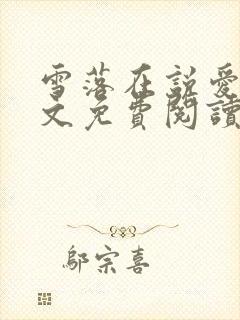 雪落在說愛
文免費閱讀
鄔宗喜